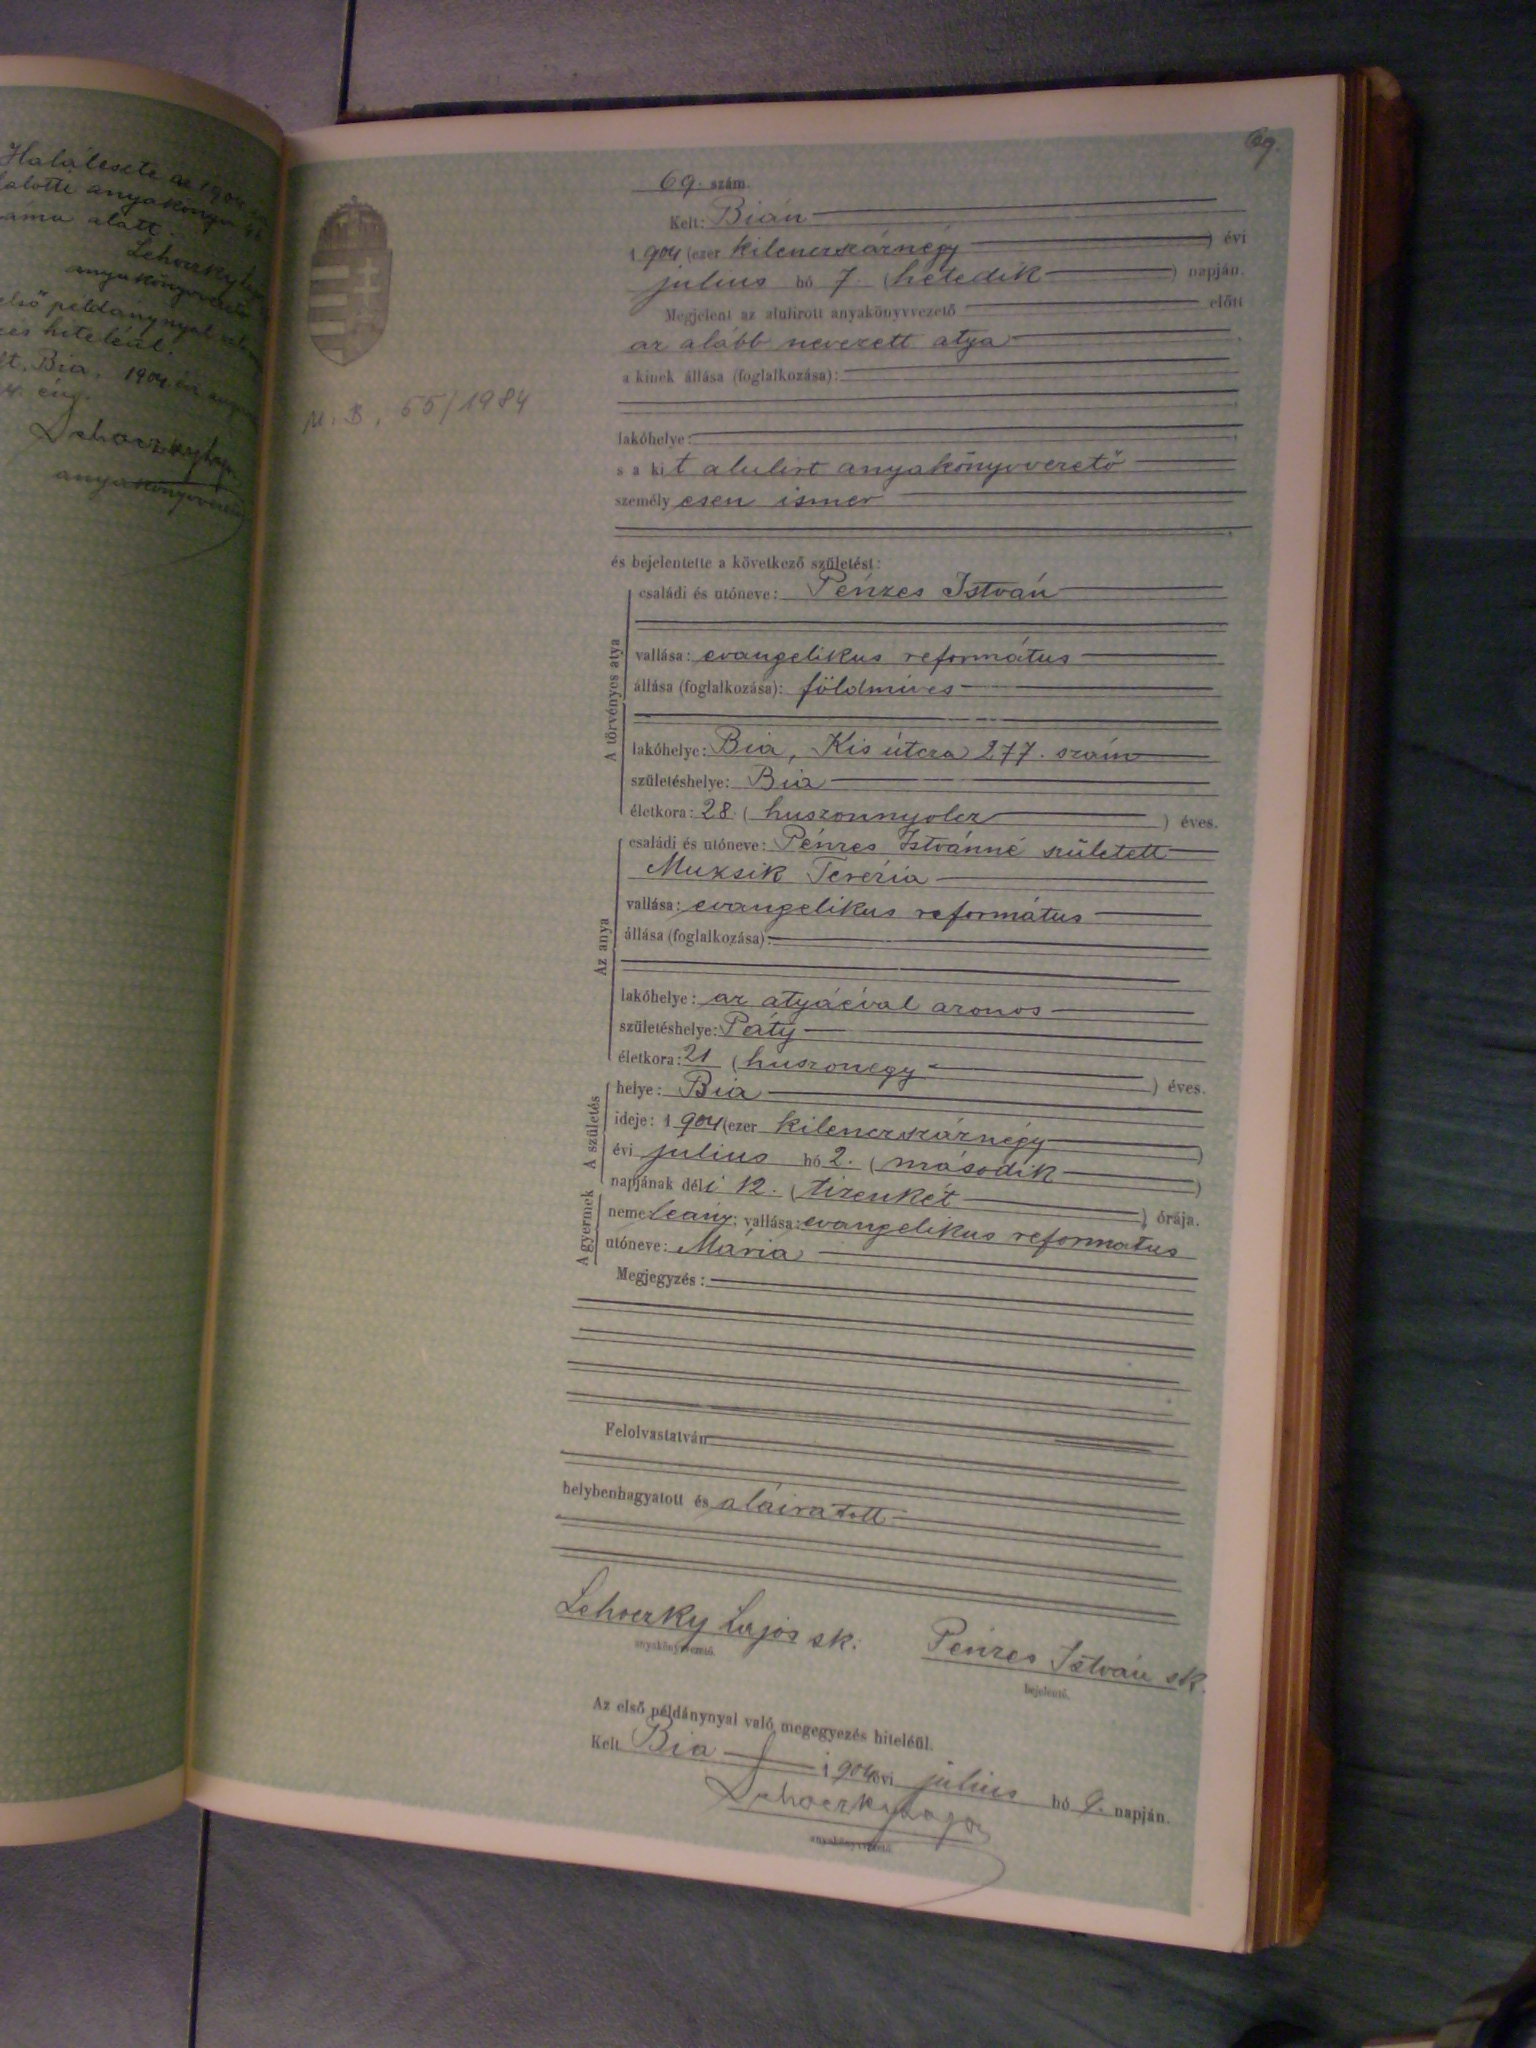 Halálesete az 1904
anyakönyv
alatt.
Lehoczky
anyakönyvvezető
első példánynyal
hiteléül.
Bia, 1904
Lehoczky Lajos
anyakönyvvezető
69.
69. szám.
Kelt: Bián
1904 (ezer kilenczszáznégy) évi
julius hó 7. (hetedik) napján.
Megjelent az alulirott anyakönyvvezető előtt
az alább nevezett atya
a kinek állása (foglalkozása):
lakóhelye:
s a kit alulirt anyakönyvvezető
személyesen ismer
és bejelentette a következő születést:
A törvényes atya
családi és utóneve: Pénzes István
vallása: evangelikus református
állása (foglalkozása): földmíves
lakóhelye: Bia, Kis útcza 277. szám
születéshelye: Bia
életkora: 28 (huszonnyolcz) éves.
Az anya
családi és utóneve: Pénzes Istvánné született
Muzsik Terézia
vallása: evangelikus református
állása (foglalkozása):
lakóhelye: az atyáéval azonos
születéshelye: Páty
életkora: 21 (huszonegy) éves.
A születés
helye: Bia
ideje: 1904 (ezer kilenczszáznégy)
évi julius hó 2. (második)
napjának déli 12. (tizenkét) órája.
A gyermek
neme: leány; vallása: evangelikus református
utóneve: Mária
Megjegyzés:
Felolvastatván
helybenhagyatott és aláiratott
Lehoczky Lajos sk. Pénzes István sk.
anyakönyvvezető. bejelentő.
Az első példánynyal való megegyezés hiteléül.
Kelt Bia 1904 évi julius hó 9. napján.
Lehoczky Lajos
anyakönyvvezető.
M. B. 55/1984